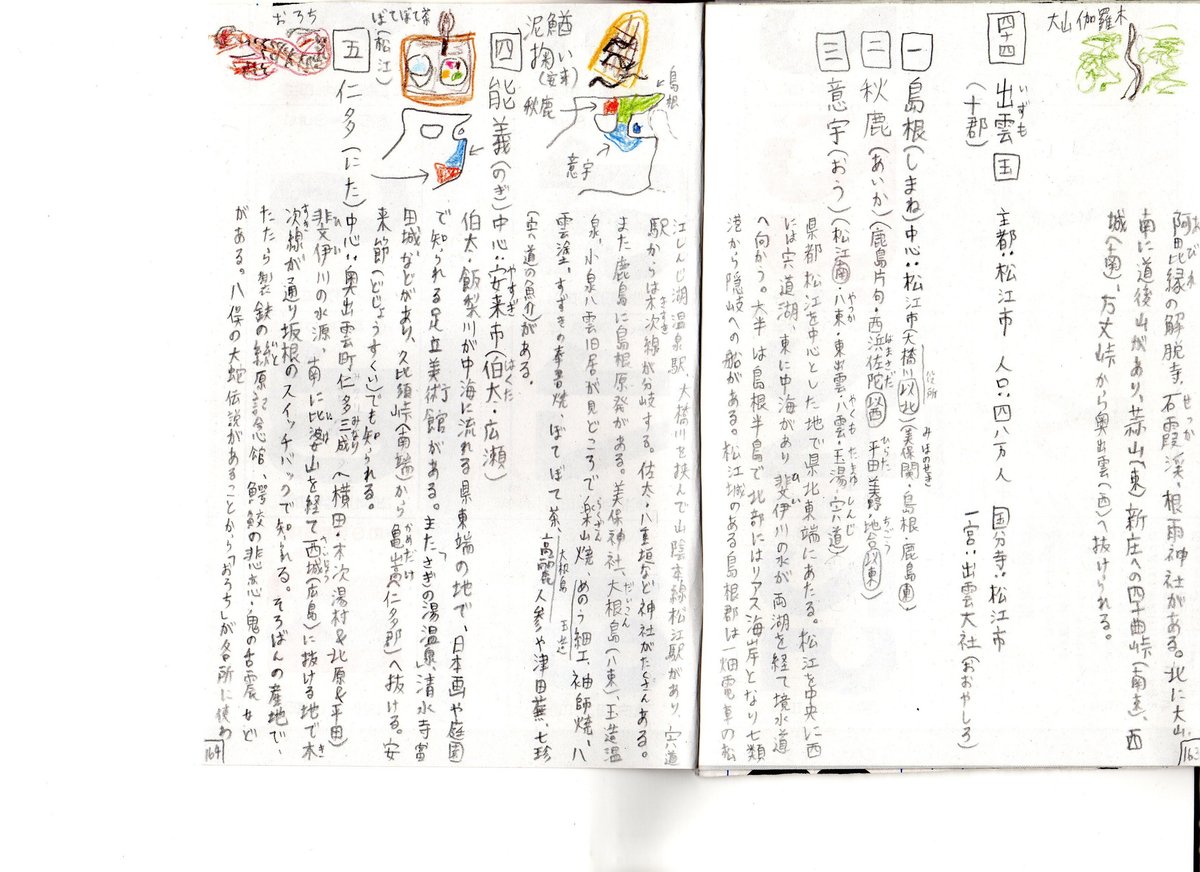 大山伽羅木
阿毘縁の解脱寺、石霞渓、根雨神社がある。北に大山、
南に道後山があり、蒜山(東)新庄への四十曲峠(南東)、西
城(南)、万丈峠から奥出雲(西)へ抜けられる。
163
四十四 出雲国 主都:松江市 人口:四八万人 国分寺:松江市
いずも
(十郡) 一宮:出雲大社(おおやしろ)
一 島根(しまね)中心:松江市(大橋川以北)(美保関・島根・鹿島東)
役所
みほのせき
二 秋鹿(あいか)(鹿島片句・西浜佐陀以西 平田美野・地合以東)
はまさだ ひらた ちごう
三 意宇(おう)(松江南・八東・東出雲・八雲・玉湯・宍道)
やつか やくも たまゆ しんじ
県都松江を中心とした地で県北東端にあたる。松江を中央に西
には宍道湖、東に中海があり斐伊川の水が両湖を経て境水道
ひい
へ向かう。大半は島根半島で北部にはリアス海岸となり七類
港から隠岐への船がある。松江城のある島根郡は一畑電車の松
島根
意宇
秋鹿
鰌
泥掬い(安来)
江しんじ湖温泉駅、大橋川を挟んで山陰本線松江駅があり、宍道
駅からは木次線が分岐する。佐太・八重垣など神社がたくさんある。
きすき
また鹿島に島根原発がある。美保神社、大根島(八東)、玉造温
だいこん
泉、小泉八雲旧居が見どころで楽山焼、めのう細工、袖師焼、八
らくざん
玉造
雲塗、すずきの奉書焼、ぼてぼて茶、高麗人参や津田蕪、七珍
大根島
(宍道の魚介)がある。
四 能義(のぎ)中心:安来市(伯太・広瀬)
やすぎ はくた
伯太・飯梨川が中海に流れる県東端の地で、日本画や庭園
で知られる足立美術館がある。また「さぎの湯温泉」、清水寺、富
田城などがあり、久比須峠(南端)から亀嵩(仁多郡)へ抜ける。安
かめだけ
来節(どじょうすくい)でも知られる。
ぼてぼて茶
(松江)
五 仁多(にた)中心:奥出雲町仁多三成へ横田・木次湯村&北原&平田)
みなり
斐伊川の水源、南に比婆山を経て西城(広島)に抜ける地で木
ひい
へいじょう
次線が通り坂根のスイッチバックで知られる。そろばんの産地で、
すき
たたら製鉄の絲原記念館、鰐鮫の悲恋・鬼の舌震など
がある。八俣の大蛇伝説があることから「おろち」が各所に使わ
おろち
164